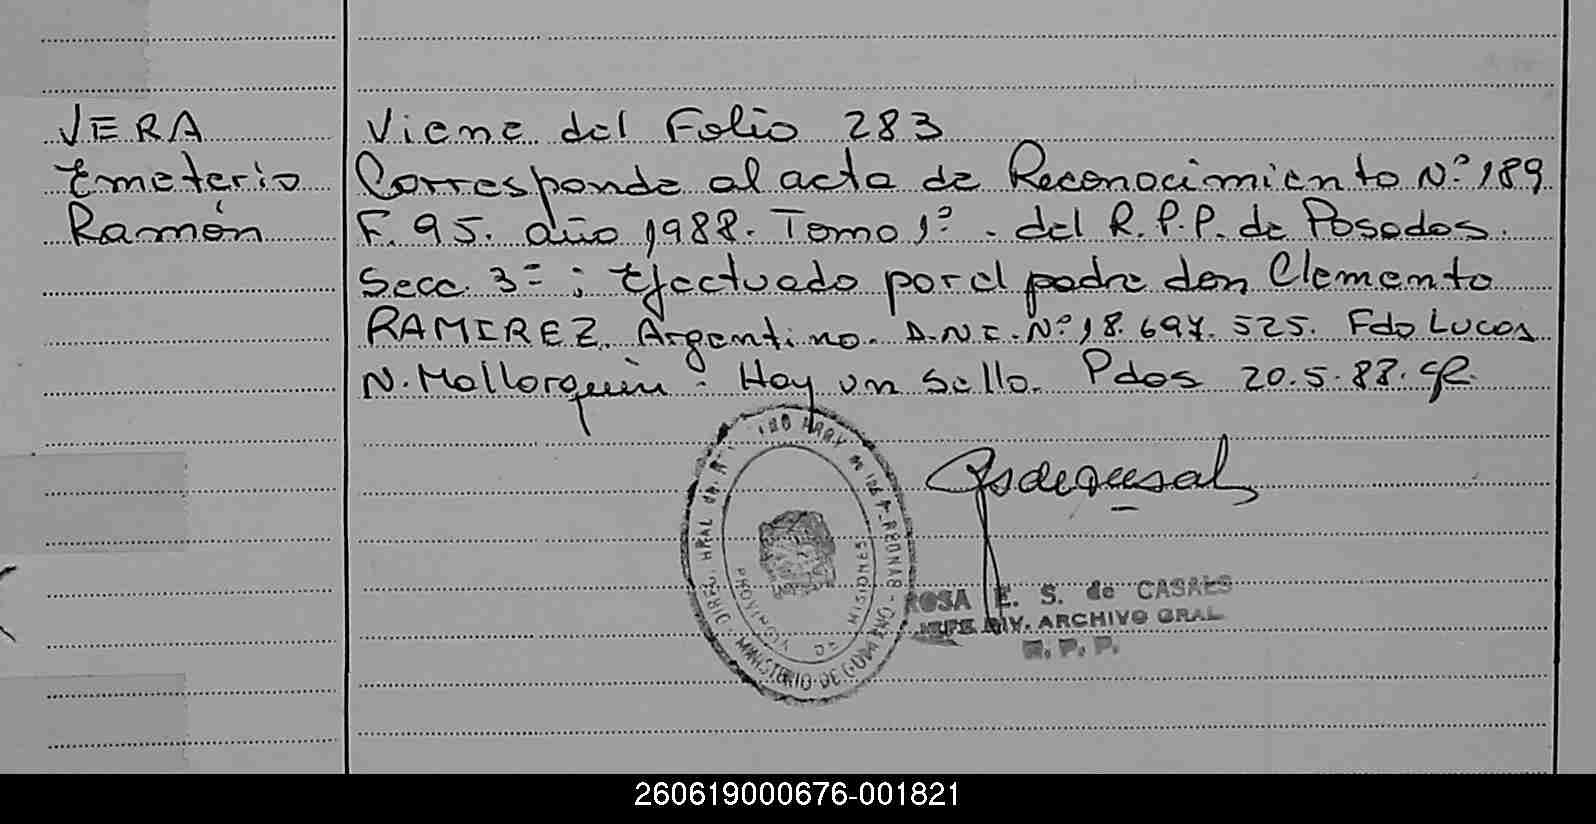 VERA
Emeterio
Ramón
Viene del Folio 283
Corresponde al acta de Reconocimiento Nº 189
F. 95. año 1988. Tomo 1º. del R.P.P. de Posadas.
Secc. 3ª; Efectuado por el padre don Clemente
RAMIREZ. Argentino. D.N.I. Nº 18.697.525. Fdo Lucas
N. Mallorquin. Hay un Sello. Pdas 20.5.88.
PROVINCIA DE MISIONES
MINISTERIO DE GOBIERNO
ROSA E. S. de CASALS
JEFE DIV. ARCHIVO GRAL
R. P. P.
260619000676-001821